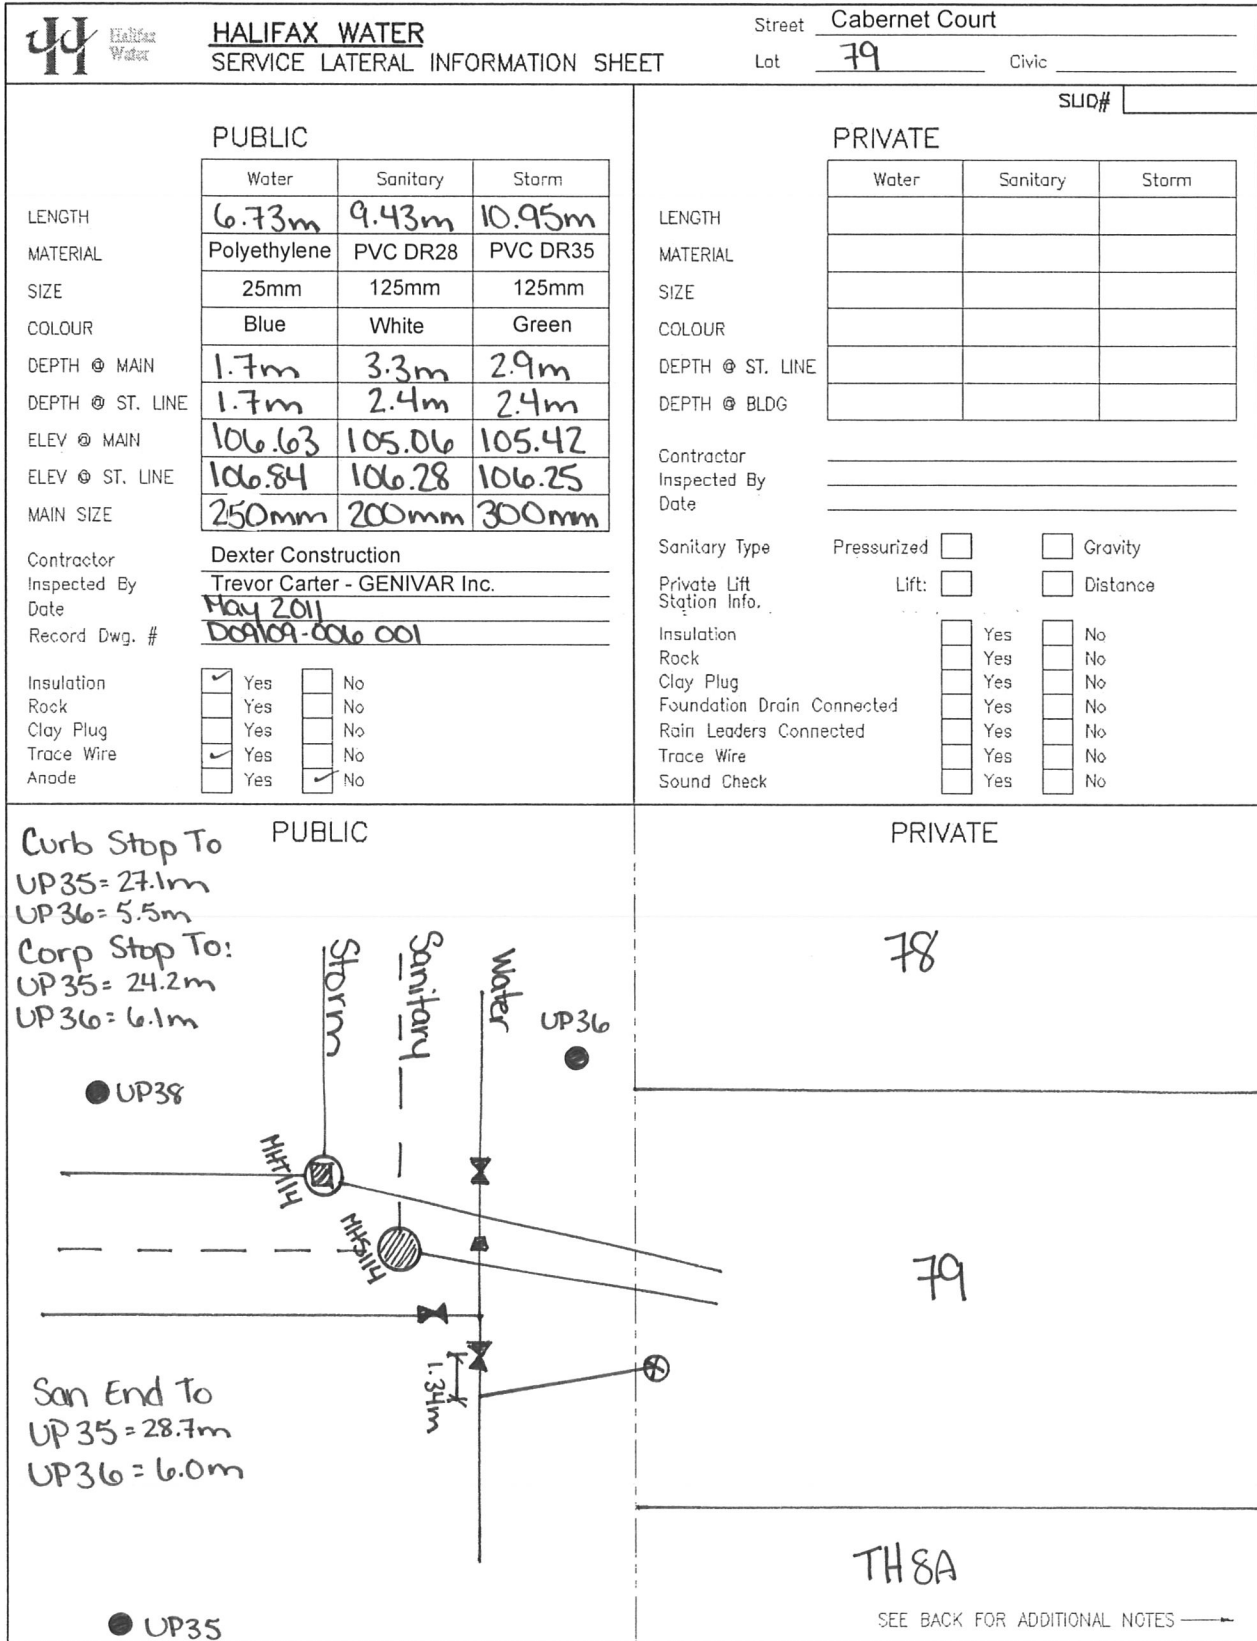 Halifax Water
HALIFAX WATER
SERVICE LATERAL INFORMATION SHEET
Street Cabernet Court
Lot 79 Civic
SLID#
PUBLIC
Water Sanitary Storm
LENGTH 6.73m 9.43m 10.95m
MATERIAL Polyethylene PVC DR28 PVC DR35
SIZE 25mm 125mm 125mm
COLOUR Blue White Green
DEPTH @ MAIN 1.7m 3.3m 2.9m
DEPTH @ ST. LINE 1.7m 2.4m 2.4m
ELEV @ MAIN 106.63 105.06 105.42
ELEV @ ST. LINE 106.84 106.28 106.25
MAIN SIZE 250mm 200mm 300mm
Contractor Dexter Construction
Inspected By Trevor Carter - GENIVAR Inc.
Date May 2011
Record Dwg. # D09109-006 001
Insulation ✓ Yes No
Rock Yes No
Clay Plug Yes No
Trace Wire ✓ Yes No
Anode Yes ✓ No
PRIVATE
Water Sanitary Storm
LENGTH
MATERIAL
SIZE
COLOUR
DEPTH @ ST. LINE
DEPTH @ BLDG
Contractor
Inspected By
Date
Sanitary Type Pressurized Gravity
Private Lift Lift: Distance
Station Info.
Insulation Yes No
Rock Yes No
Clay Plug Yes No
Foundation Drain Connected Yes No
Rain Leaders Connected Yes No
Trace Wire Yes No
Sound Check Yes No
PUBLIC
Curb Stop To
UP35= 27.1m
UP36= 5.5m
Corp Stop To:
UP35= 24.2m
UP36= 6.1m
Storm
Sanitary
Water
UP36
UP38
MHT114
MHS114
1.34m
San End To
UP35=28.7m
UP36=6.0m
UP35
PRIVATE
78
79
TH8A
SEE BACK FOR ADDITIONAL NOTES